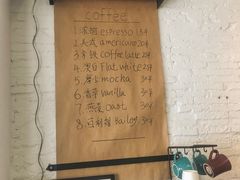 coffee
1 浓缩 espresso 15¥
2 美式 americano 20¥
3 拿铁 coffee latte 25¥
4 澳白 Flat white 25¥
5 摩卡 mocha 30¥
6 香草 vanilla 30¥
7 燕麦 oast 30¥
8 百利甜 Bailey 30¥